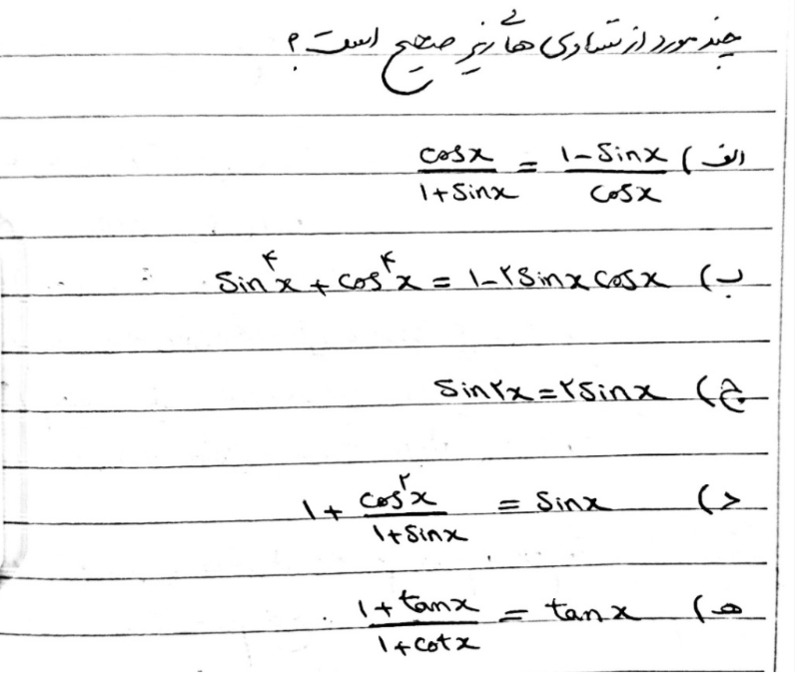 چند مورد از تساوی های زیر صحیح است؟
الف) cosx/(1+sinx) = (1-sinx)/cosx
ب) sin⁴x + cos⁴x = 1-۲sinx cosx
ج) sin۲x = ۲sinx
د) 1 + cos²x/(1+sinx) = sinx
هـ) (1+tanx)/(1+cotx) = tanx